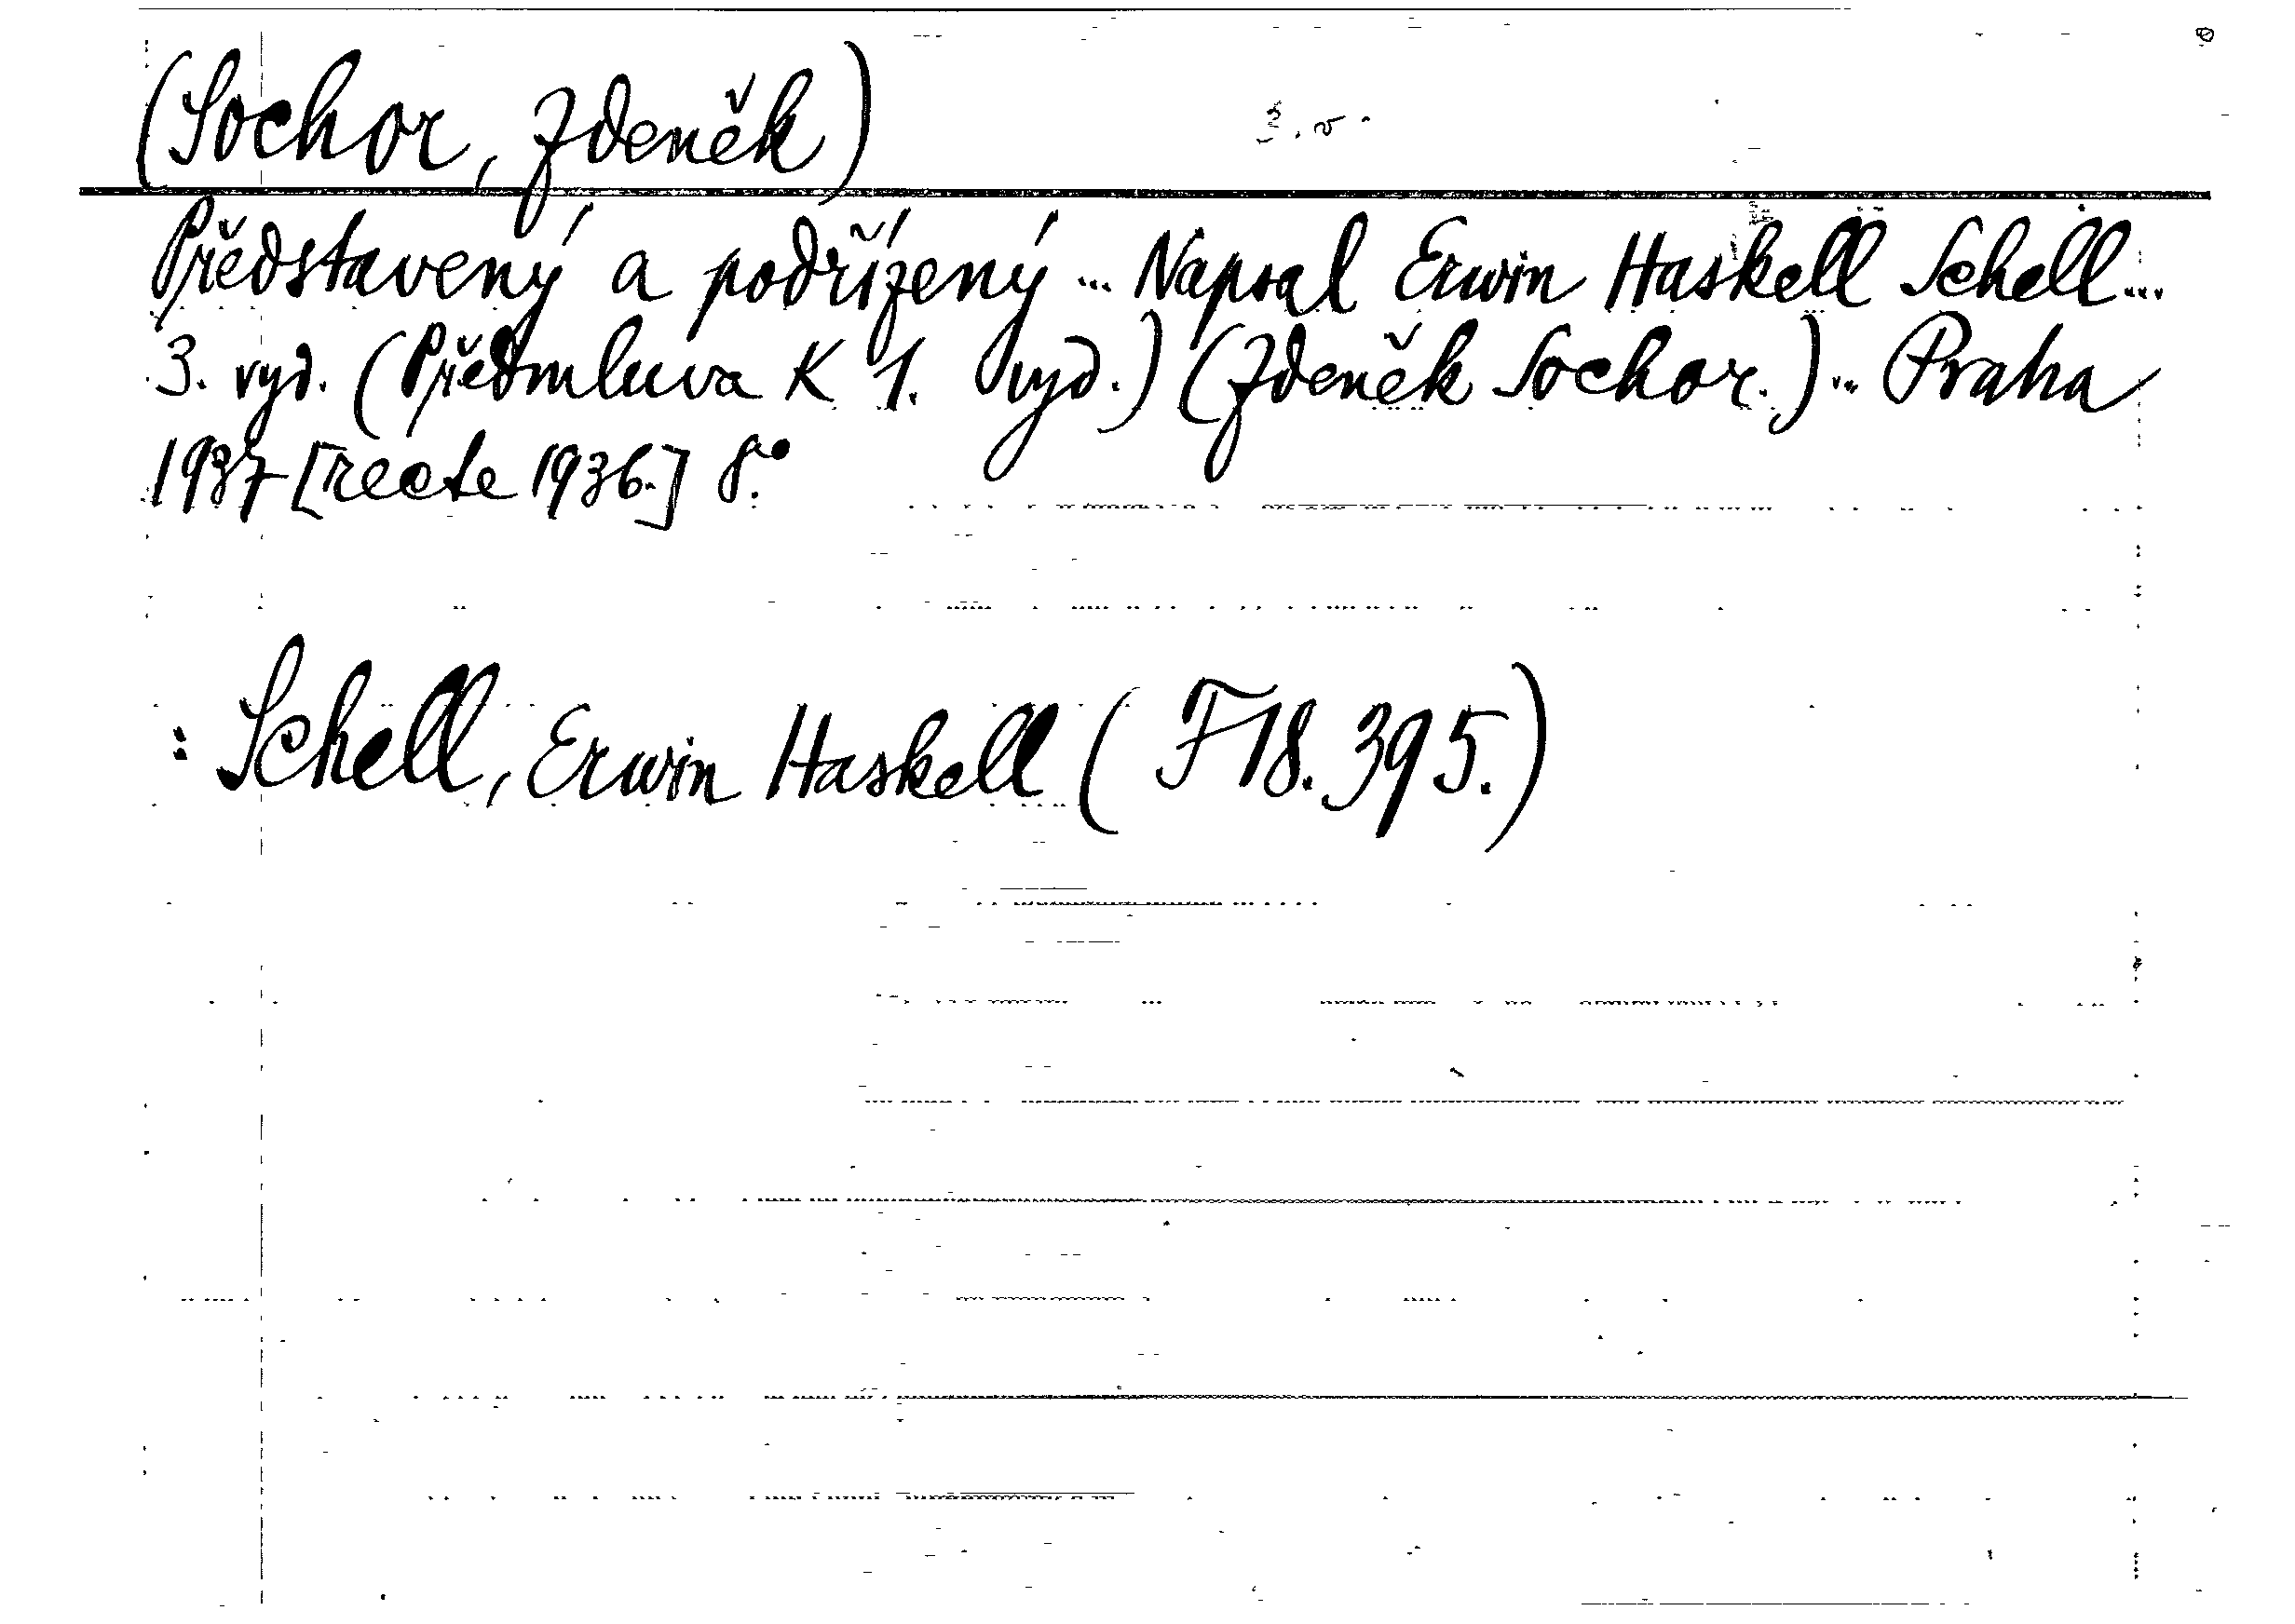 (Sochor, Zdeněk)
Představený a podřízený ... Napsal Erwin Haskell Schell...
3. vyd. (Předmluva K 1. vyd.) (Zdeněk Sochor.) ... Praha
1937 [recte 1936.] 8.°
: Schell, Erwin Haskell (F 18.395.)